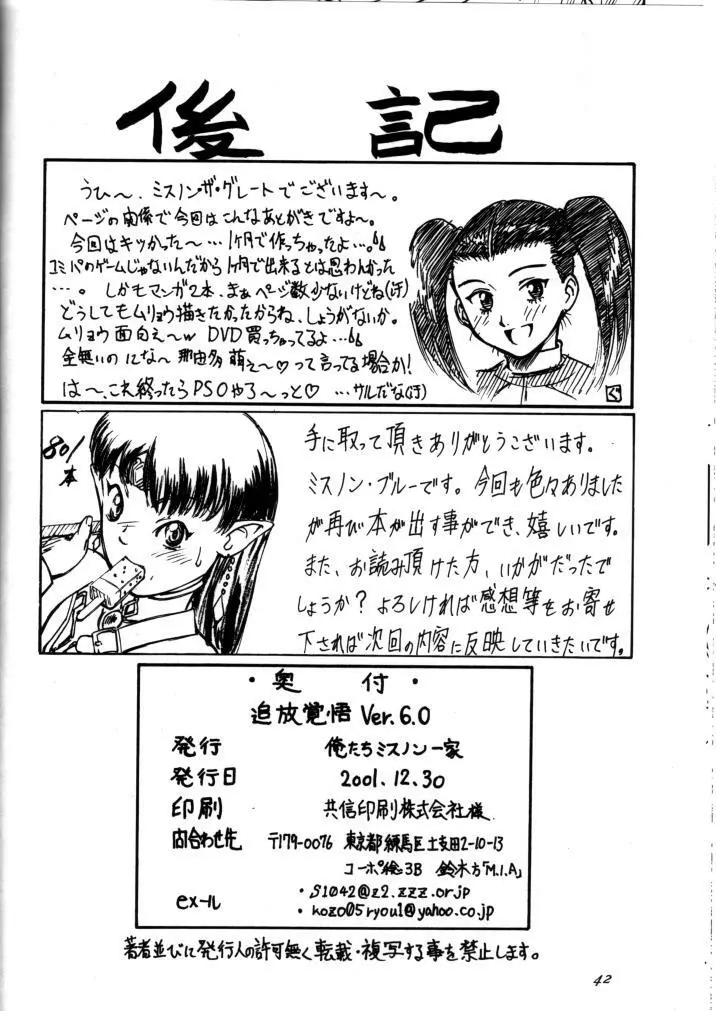 後記
うひ〜、ミスノン・ザ・グレートでございます〜。
ページの関係で今回はこんなあとがきですよ〜。
今回はキツかった〜…1ヶ月で作っちゃったよ…。
コミパのゲームじゃないんだから1ヶ月で出来るとは思わんかった
…。しかもマンガ2本、まぁページ数少ないけどね(汗)
どうしてもムリョウ描きたかったからね、しょうがないか。
ムリョウ面白え〜w DVD買っちゃってるよ…
金無いのにな〜 那由多萌え〜♡って言ってる場合か!
は〜、これ終ったらPSOやろ〜っと♡ …サルだな(汗)
ぐ
801
本
手に取って頂きありがとうございます。
ミスノン・ブルーです。今回も色々ありました
が再び本が出す事ができ、嬉しいです。
また、お読み頂けた方、いかがだったで
しょうか?よろしければ感想等をお寄せ
下されば次回の内容に反映していきたいです。
・奥付・
追放覚悟 Ver.6.0
発行 俺たちミスノン一家
発行日 2001.12.30
印刷 共信印刷株式会社様
問合わせ先 〒179-0076 東京都練馬区土支田2-10-13
コーポ絵3B 鈴木方「M.I.A」
exール ・S1042@z2.zzz.or.jp
・kozo05ryou1@yahoo.co.jp
著者並びに発行人の許可無く転載・複写する事を禁止します。
42